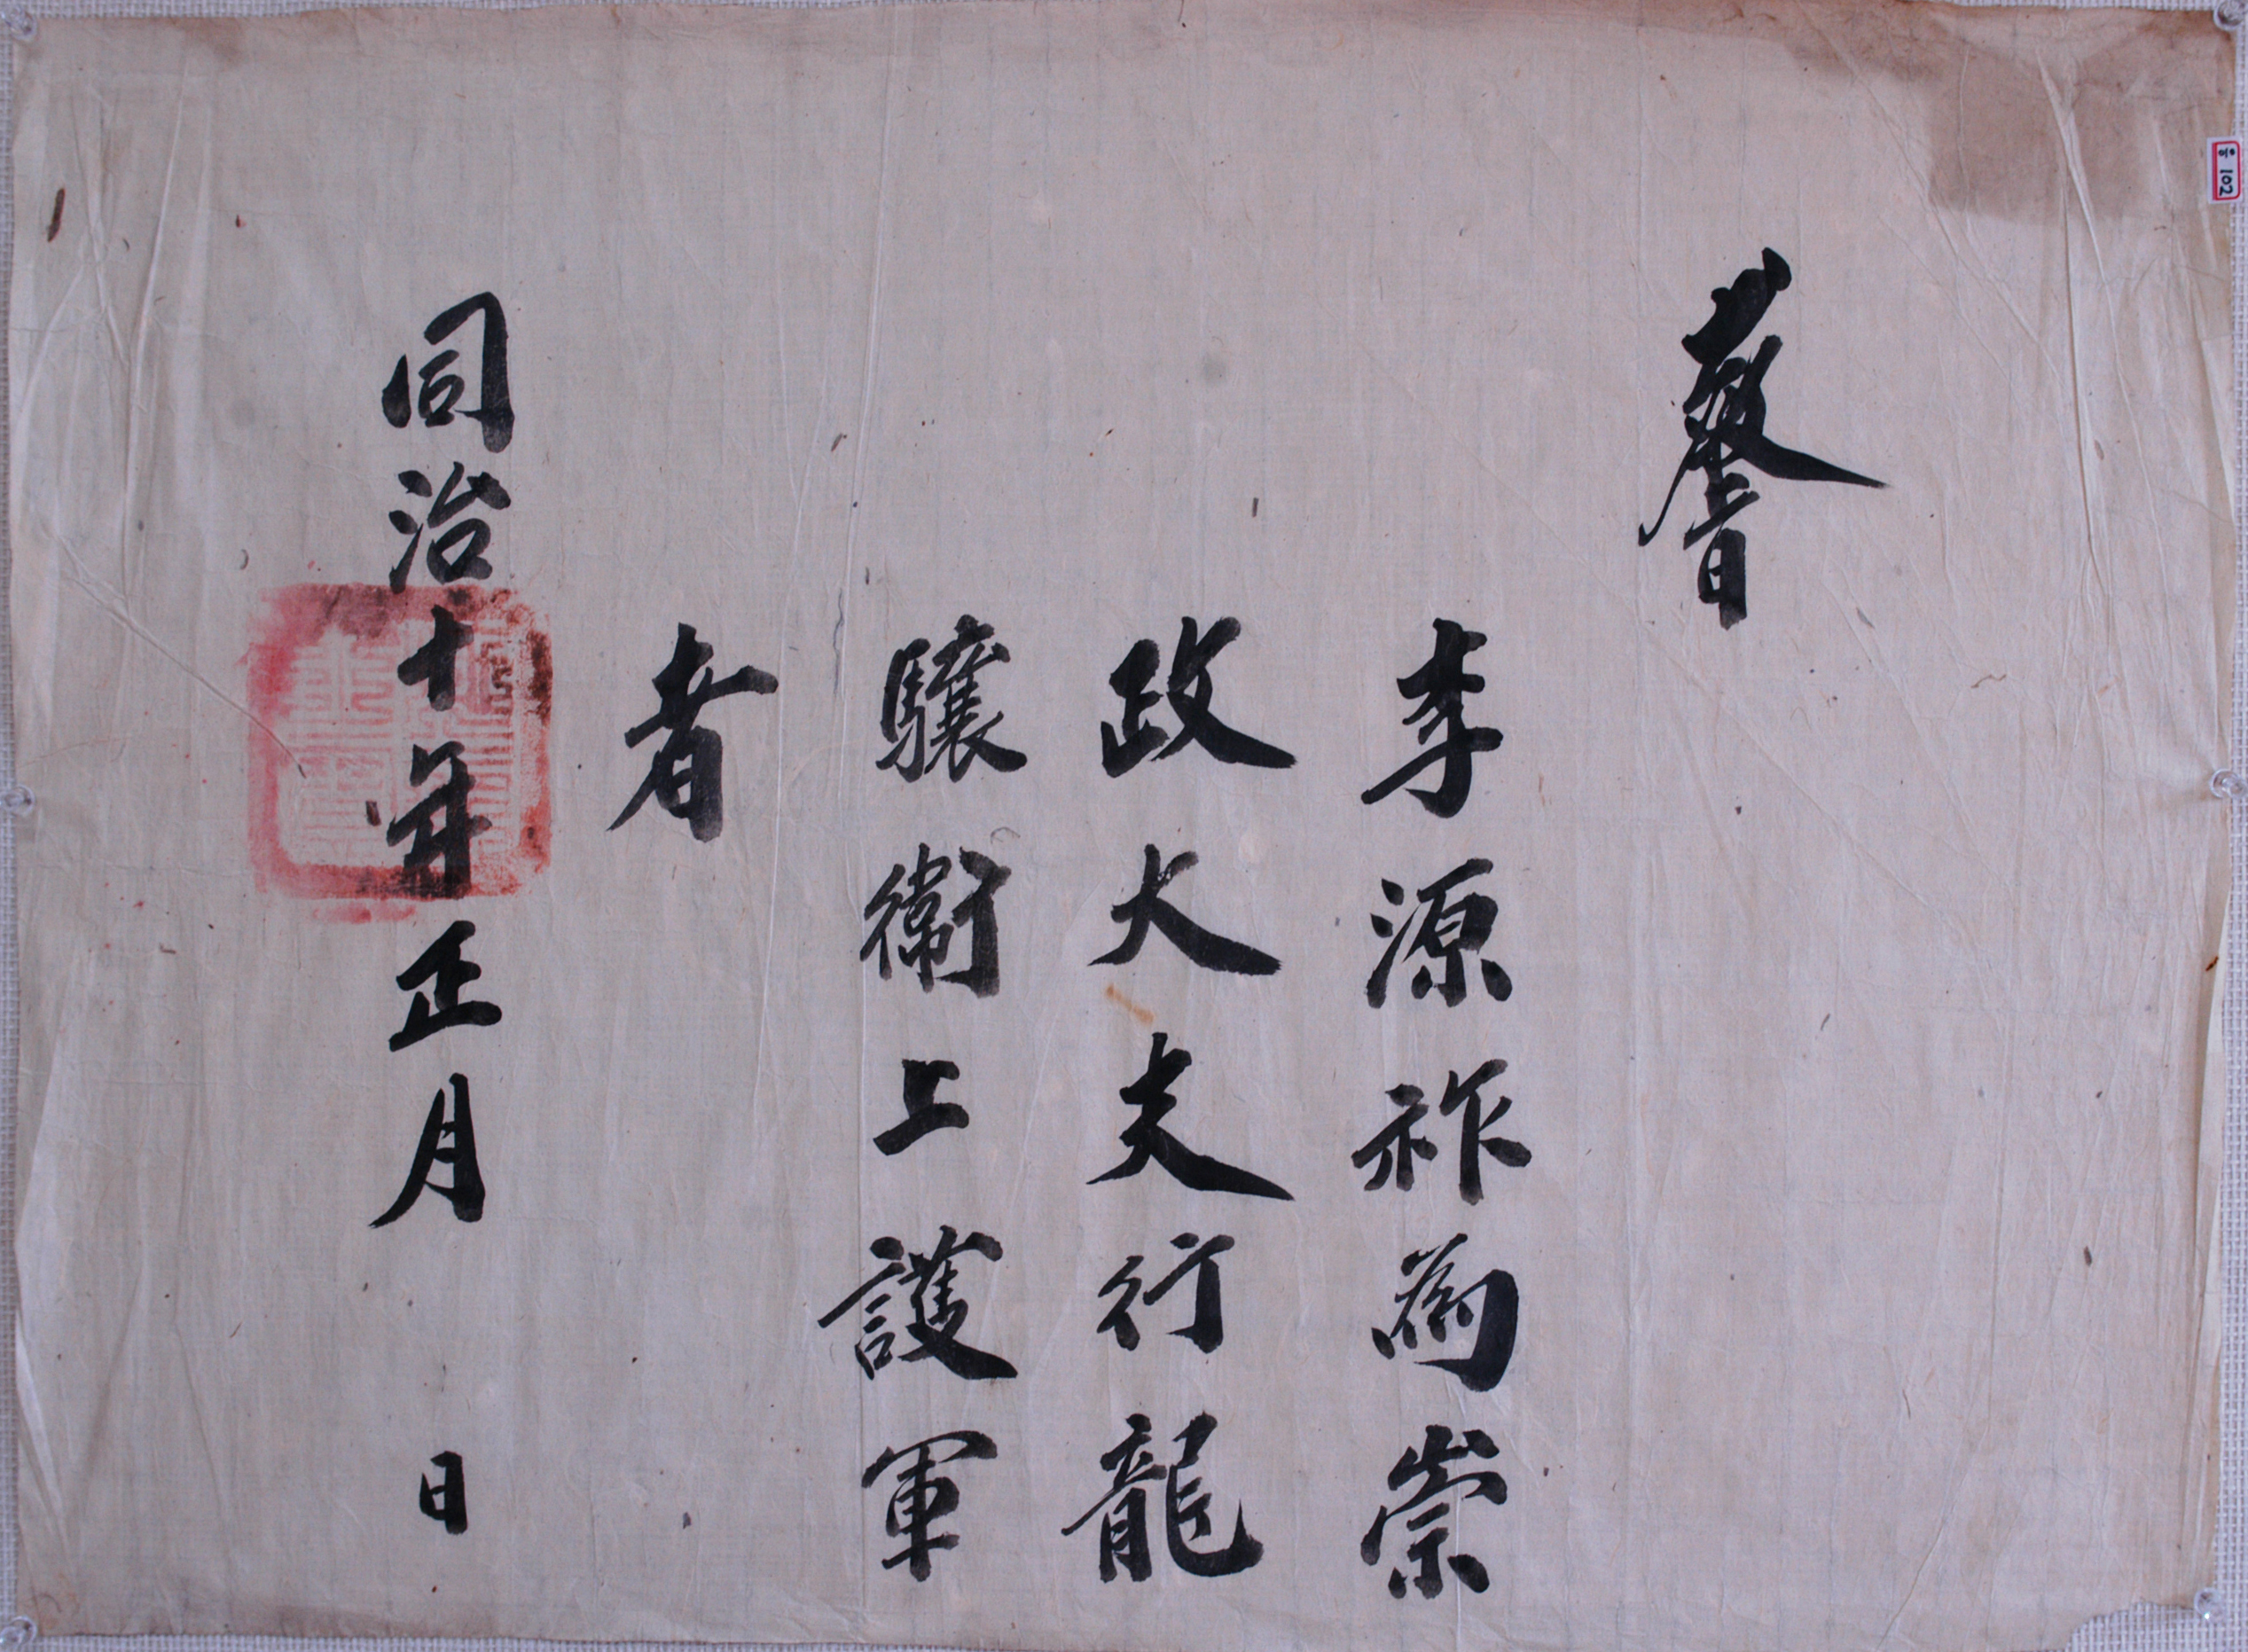 敎旨
李源祚為崇
政大夫行龍
驤衛上護軍
者
同治十年正月 日
102